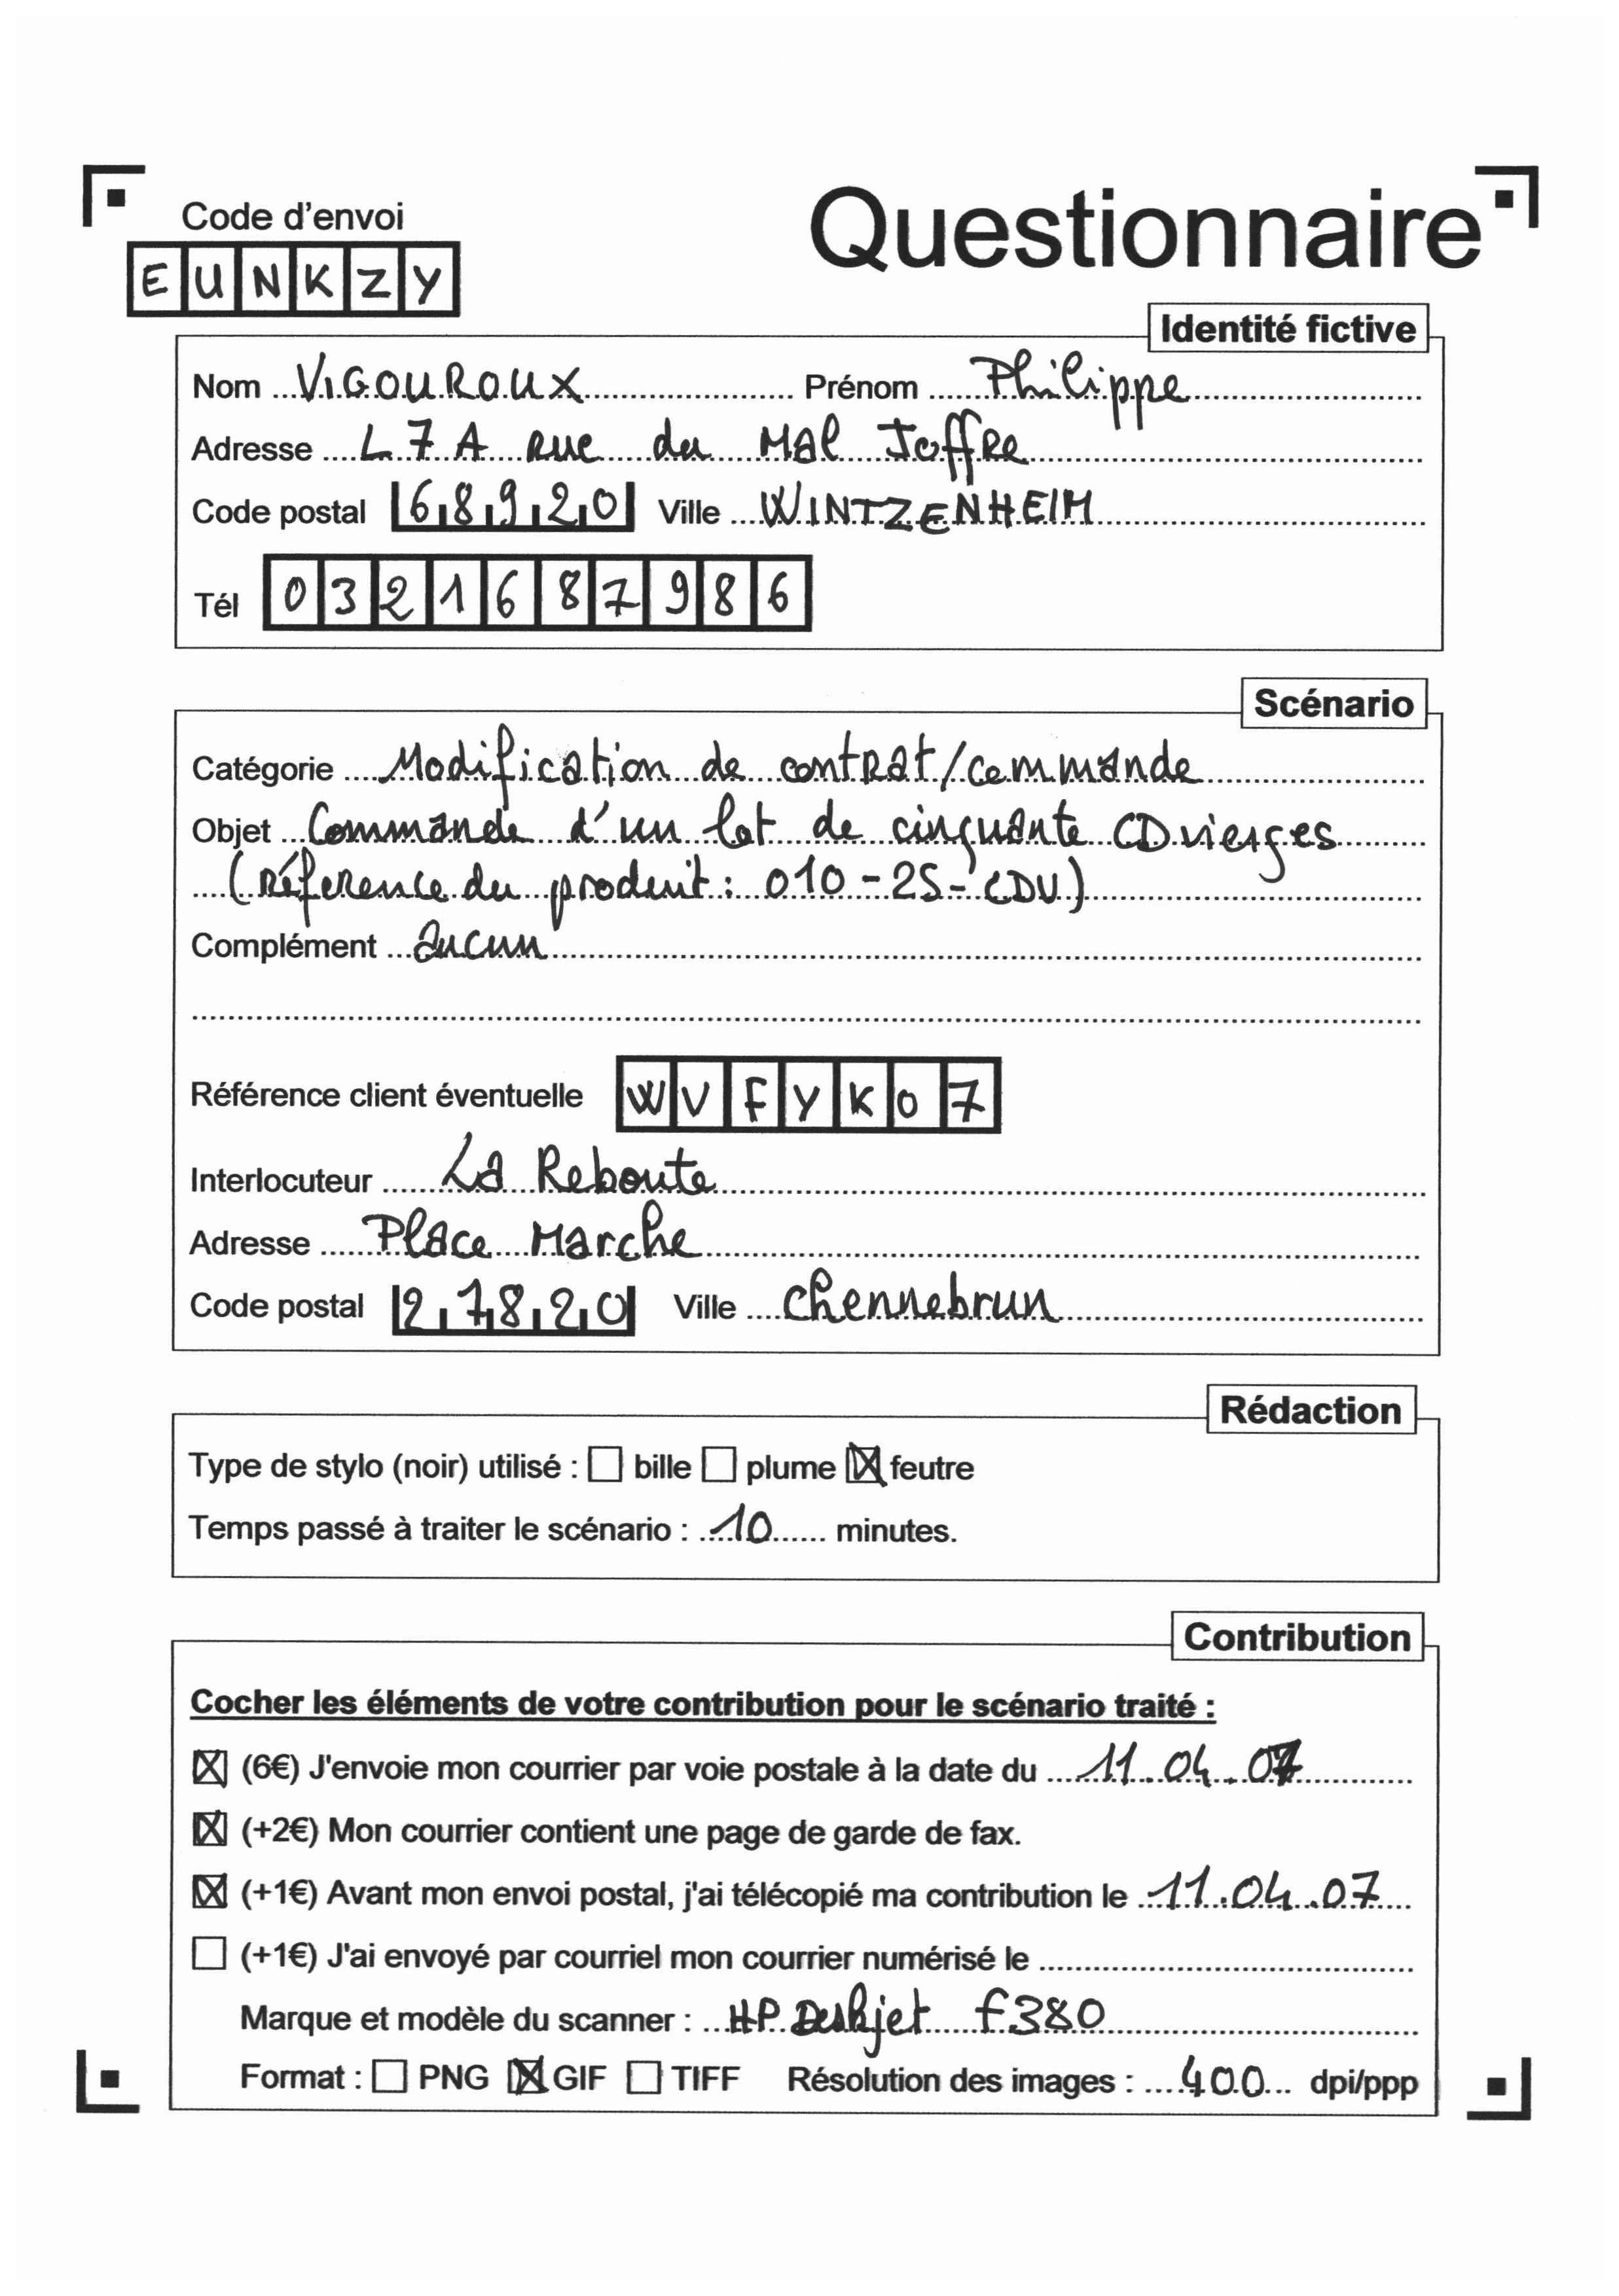 Code d'envoi
Questionnaire
E U N K Z Y
Identité fictive
Nom VIGOUROUX Prénom Philippe
Adresse L 7 A Rue du Mal Joffre
Code postal 68920 Ville WINTZENHEIM
Tél 0321687986
Scénario
Catégorie Modification de contrat/commande
Objet Commande d'un lot de cinquante CD vierges
(Référence du produit : 010-25-CDV)
Complément aucun
Référence client éventuelle W V F Y K 0 7
Interlocuteur La Reboute
Adresse Place Marche
Code postal 27820 Ville Chennebrun
Rédaction
Type de stylo (noir) utilisé : ☐ bille ☐ plume ☒ feutre
Temps passé à traiter le scénario : 10 minutes.
Contribution
Cocher les éléments de votre contribution pour le scénario traité :
☒ (6€) J'envoie mon courrier par voie postale à la date du 11.04.07
☒ (+2€) Mon courrier contient une page de garde de fax.
☒ (+1€) Avant mon envoi postal, j'ai télécopié ma contribution le 11.04.07
☐ (+1€) J'ai envoyé par courriel mon courrier numérisé le
Marque et modèle du scanner : HP Deskjet F380
Format : ☐ PNG ☒ GIF ☐ TIFF Résolution des images : 400 dpi/ppp